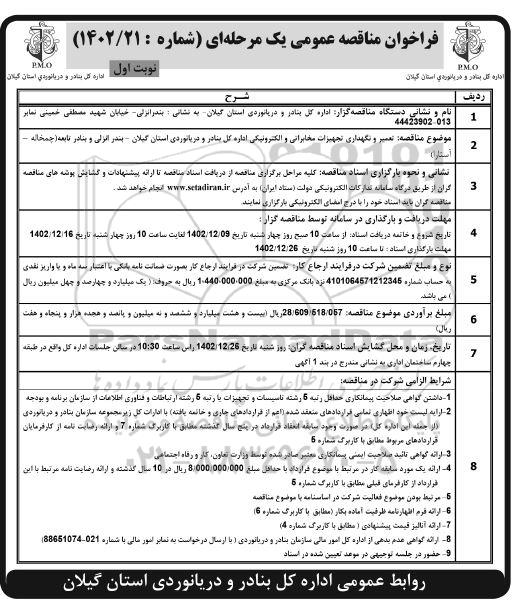 فراخوان مناقصه عمومی یک مرحله‌ای (شماره : ۱۴۰۲/۲۱)
نوبت اول
P.M.O
اداره کل بنادر و دریانوردی استان گیلان
P.M.O
اداره کل بنادر و دریانوردی استان گیلان
ردیف شرح
1 نام و نشانی دستگاه مناقصه‌گزار: اداره کل بنادر و دریانوردی استان گیلان- به نشانی : بندرانزلی- خیابان شهید مصطفی خمینی نمابر
013-44423902
2 موضوع مناقصه: تعمیر و نگهداری تجهیزات مخابراتی و الکترونیکی اداره کل بنادر و دریانوردی استان گیلان – بندر انزلی و بنادر تابعه(چمخاله –
آستارا)
3 نشانی و نحوه بارگزاری اسناد مناقصه: کلیه مراحل برگزاری مناقصه از دریافت اسناد مناقصه تا ارائه پیشنهادات و گشایش پوشه های مناقصه
گران از طریق درگاه سامانه تدارکات الکترونیکی دولت (ستاد ایران) به آدرس www.setadiran.ir انجام خواهد شد.
مناقصه گران باید اسناد خود را با درج امضای الکترونیکی بارگزاری نمایند.
4 مهلت دریافت و بارگذاری در سامانه توسط مناقصه گزار:
تاریخ شروع و خاتمه دریافت اسناد: از ساعت 10 صبح روز چهار شنبه تاریخ 1402/12/09 لغایت ساعت 10 روز چهار شنبه تاریخ 1402/12/16
مهلت بارگذاری اسناد : تا ساعت 10 روز شنبه تاریخ 1402/12/26
5 نوع و مبلغ تضمین شرکت درفرایند ارجاع کار: تضمین شرکت در فرایند ارجاع کار بصورت ضمانت نامه بانکی با اعتبار سه ماه و یا واریز نقدی
به حساب شماره 4101064571212345 نزد بانک مرکزی به مبلغ 1-440-000-000 ریال به حروف: ( یک میلیارد و چهارصد و چهل میلیون ریال
) می باشد.
6 مبلغ برآوردی موضوع مناقصه: 28/609/518/057ریال (بیست و هشت میلیارد و ششصد و نه میلیون و پانصد و هجده هزار و پنجاه و هفت
ریال)
7 تاریخ، زمان و محل گشایش اسناد مناقصه گران: روز شنبه تاریخ 1402/12/26 راس ساعت 10:30 در سالن جلسات اداره کل واقع در طبقه
چهارم ساختمان اداری به نشانی مندرج در بند 1 آگهی
8 شرایط الزامی شرکت در مناقصه:
1-داشتن گواهی صلاحیت پیمانکاری حداقل رتبه 5 رشته تاسیسات و تجهیزات یا رتبه 5 رشته ارتباطات و فناوری اطلاعات از سازمان برنامه و بودجه
2-ارایه لیست خود اظهاری تمامی قراردادهای منعقد شده (اعم از قراردادهای جاری و خاتمه یافته) با ادارات کل زیرمجموعه سازمان بنادر و دریانوردی
(از جمله این اداره کل)، در صورت وجود سابقه انعقاد قرارداد در پنج سال گذشته مطابق با کاربرگ شماره 7 و ارائه رضایت نامه از کارفرمایان
قراردادهای مربوط مطابق با کاربرگ شماره 5
3-ارائه گواهی تائید صلاحیت ایمنی پیمانکاری معتبر صادر شده توسط وزارت تعاون، کار و رفاه اجتماعی
4- ارائه یک مورد سابقه کار در مرتبط با موضوع قرارداد با حداقل مبلغ 8/000/000/000 ریال در 10 سال گذشته و ارائه رضایت نامه مرتبط با این
قرارداد از کارفرمای قبلی مطابق با کاربرگ شماره 5
5- مرتبط بودن موضوع فعالیت شرکت در اساسنامه با موضوع مناقصه
6-ارائه فرم اظهارنامه ظرفیت آماده بکار (مطابق با کاربرگ شماره 6)
7- ارائه آنالیز قیمت پیشنهادی ( مطابق با کاربرگ شماره 4)
8- ارائه گواهی عدم بدهی از اداره کل امور مالی سازمان بنادر و دریانوردی ( با ارسال درخواست به نمابر امور مالی با شماره 021-88651074)
9- حضور در جلسه توجیهی در موعد تعیین شده در اسناد
روابط عمومی اداره کل بنادر و دریانوردی استان گیلان